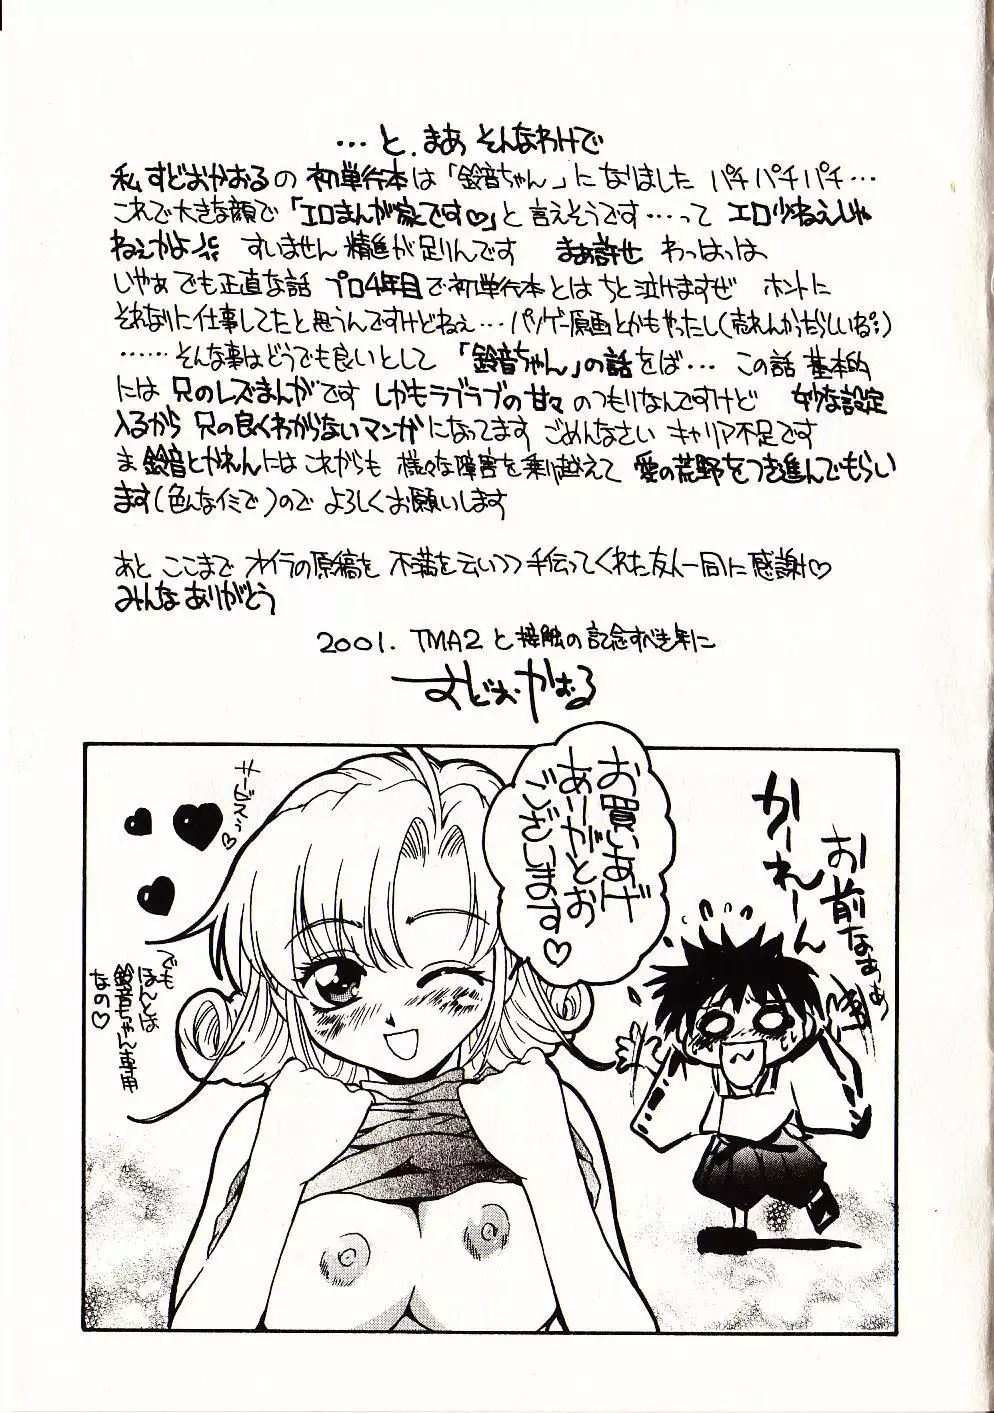 …と、まあ そんなわけで
私 すどおかおるの 初単行本は「鈴音ちゃん」になりました パチパチパチ…
これで大きな顔で「エロまんが家です♡」と言えそうです…って エロ少ねえじゃ
ねえかよ すいません 精進が足りんです まぁ許せ わっはっは
いやぁ でも正直な話 プロ4年目で初単行本とは ちと泣けますぜ ホントに
それなりに仕事してたと思うんですけどねぇ…パソゲー原画とかもやったし(売れんかったらしいね)
……そんな事はどうでも良いとして 「鈴音ちゃん」の話をば… この話 基本的
には 兄のレズまんがです しかもラブラブの甘々のつもりなんですけど 妙な設定
入るから 兄の良くわからないマンガになってます ごめんなさい キャリア不足です
ま 鈴音とかれんには これからも 様々な障害を乗り越えて 愛の荒野をつき進んでもらい
ます(色んなイミで)ので よろしくお願いします
あと ここまで オイラの原稿を 不満を云いつつ手伝ってくれた友人一同に 感謝♡
みんなありがとう
2001. TMA2 と接触の記念すべき年に
すどお・かおる
お買いあげ
ありがとお
ございます♡
サービスぅ♡
でも
ほんとは
鈴音ちゃん専用
なの♡
かーれーん
お前なぁぁ